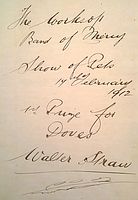 The Worksop
Band of Mercy
Show of Pets
14th February
1912
1st Prize for
Doves
Walter Straw